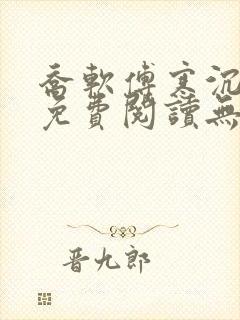 喬軟傅寒沉
免費閱讀無
晋九郎